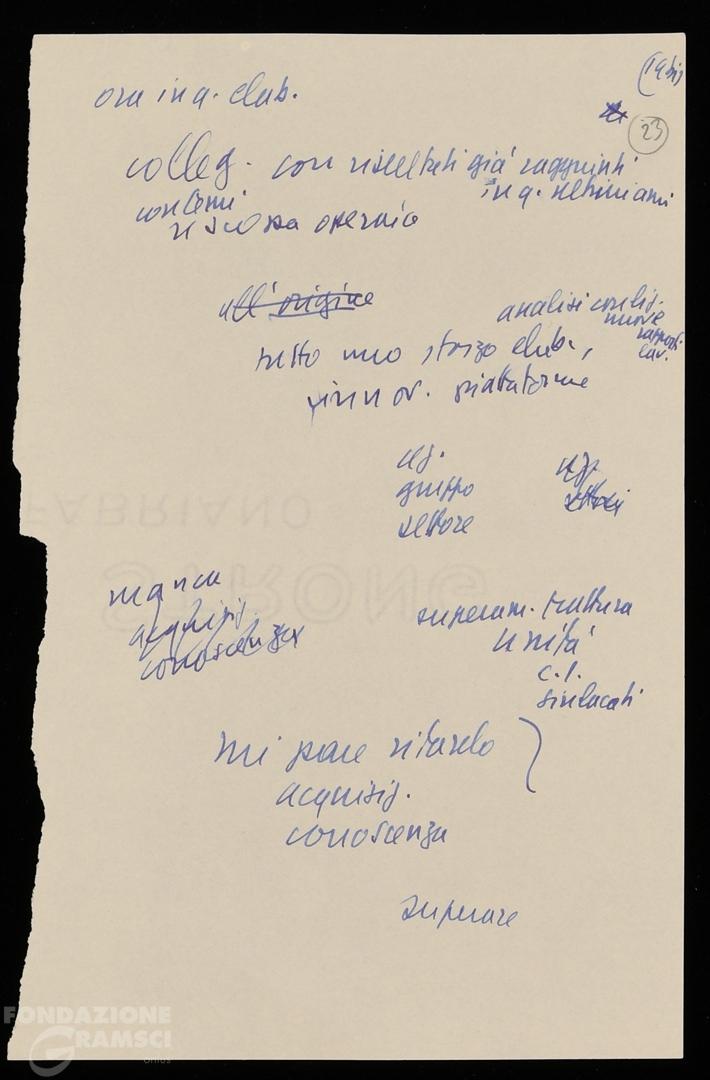 (19 bis)
23
ora in q. elab.
colleg. con risultati già raggiunti
in q. settimiami
con temi
riscossa operaia
all'origine
analisi config.
nuove
rapporti
lav.
tutto uno sforzo elab.,
innov. piattaforme
az.
gruppo
settore
manca
acquisiz.
conoscenza
superam. frattura
unità
c.i.
sindacati
mi pare ritardo
acquisiz.
conoscenza
superare
FABRIANO
STRONG
FONDAZIONE
GRAMSCI
onlus